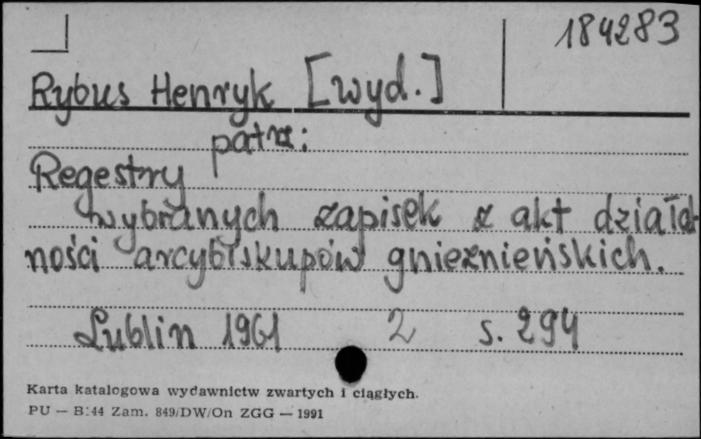 184283
Rybus Henryk [wyd.]
patrz:
Regestry
wybranych zapisek z akt działal
ności arcybiskupów gnieźnieńskich.
Lublin 1961 2 s. 294
Karta katalogowa wydawnictw zwartych i ciągłych.
PU — B:44 Zam. 849/DW/On ZGG — 1991